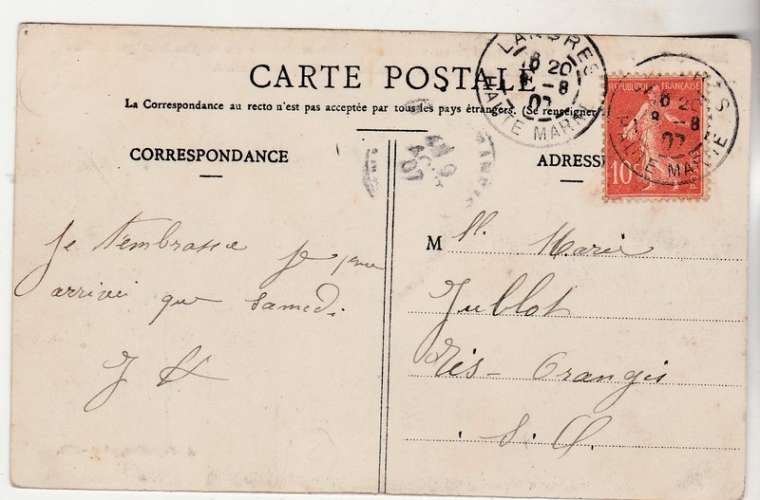 CARTE POSTALE
La Correspondance au recto n'est pas acceptée par tous les pays étrangers. (Se renseigner
CORRESPONDANCE
ADRESSE
LANGRES
6 20
8 -8
07
HAUTE MARNE
RÉPUBLIQUE FRANÇAISE
10
6 20
8 -8
07
HTE MARNE
Je t'embrasse je
arrive que Samedi.
M lle Marie
Jublot
Ris-Orangis
S. O.